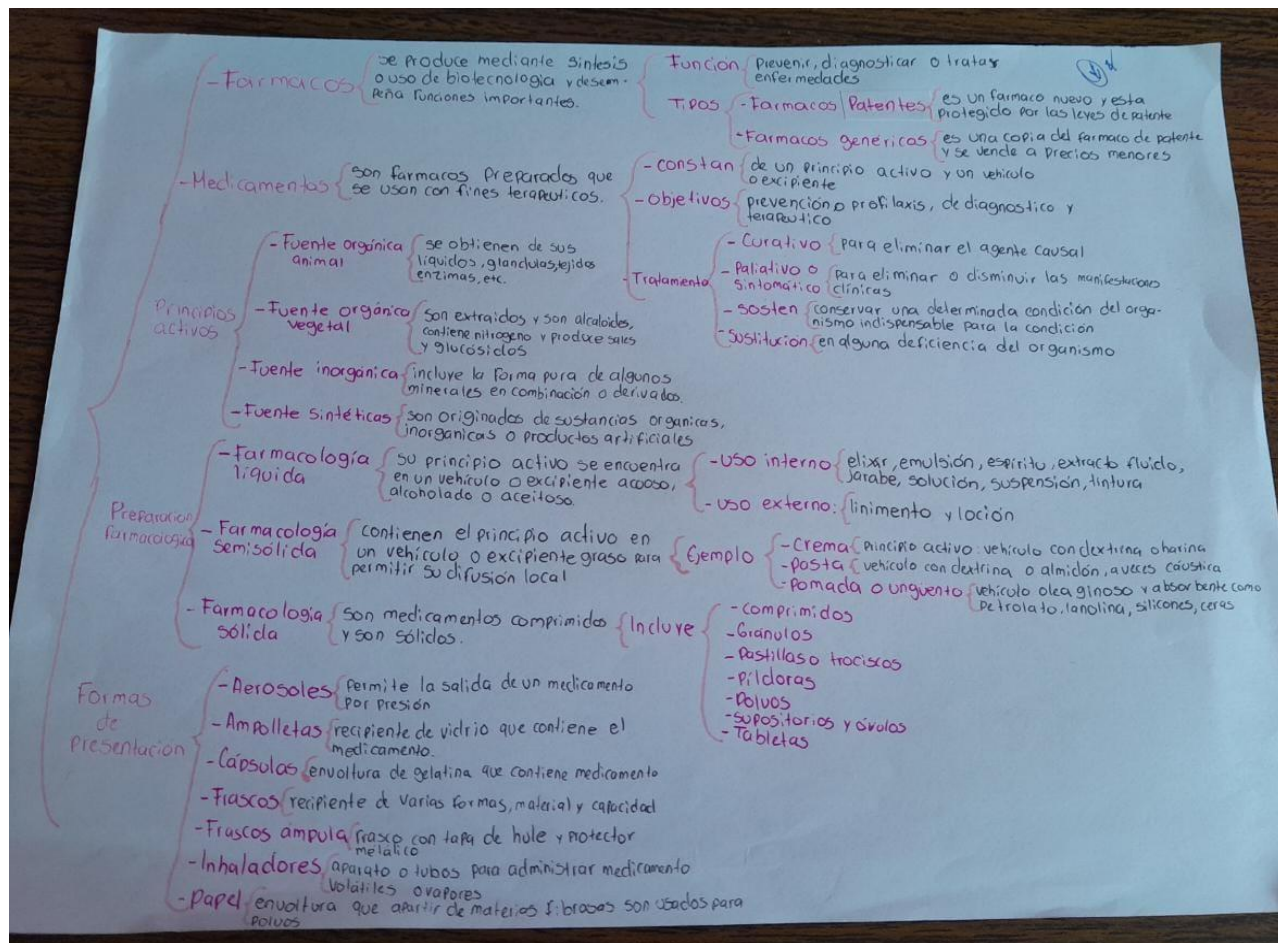 - Farmacos
se produce mediante sintesis
o uso de biotecnologia y desem-
peña funciones importantes.
Funcion
Prevenir, diagnosticar o tratar
enfermedades
Tipos
- Farmacos Patentes
es un farmaco nuevo y esta
protegido por las leyes de patente
- Farmacos genéricos
es una copia del farmaco de patente
y se vende a precios menores
- Medicamentos
son farmacos preparados que
se usan con fines terapeuticos.
- constan
de un principio activo y un vehiculo
o excipiente
- objetivos
prevención o profilaxis, de diagnostico y
terapeutico
- Tratamiento
- Curativo
para eliminar el agente causal
- Paliativo o
sintomático
para eliminar o disminuir las manifestaciones
clínicas
- sosten
conservar una determinada condición del orga-
nismo indispensable para la condición
- Sustitución
en alguna deficiencia del organismo
Principios
activos
- Fuente orgánica
animal
se obtienen de sus
líquidos, glandulas, tejidos
enzimas, etc.
- Fuente orgánica
vegetal
son extraidos y son alcaloides,
contiene nitrogeno y produce sales
y glucósidos
- Fuente inorgánica
incluye la forma pura de algunos
minerales en combinación o derivados.
- Fuente sintéticas
son originados de sustancias organicas,
inorganicas o productos artificiales
Preparacion
farmacologica
- Farmacología
líquida
su principio activo se encuentra
en un vehículo o excipiente acooso,
alcoholado o aceitoso.
- uso interno
elixir, emulsión, espíritu, extracto fluido,
jarabe, solución, suspensión, tintura
- uso externo:
linimento y loción
- Farmacología
semisólida
contienen el principio activo en
un vehículo o excipiente graso para
permitir su difusión local
Ejemplo
- Crema
Principio activo: vehiculo con dextrina o harina
- Pasta
vehiculo con dextrina o almidón, aveces cáustica
- Pomada o ungüento
vehículo oleaginoso y absorbente como
petrolato, lanolina, silicones, ceras
- Farmacología
sólida
son medicamentos comprimidos
y son sólidos.
Incluye
- comprimidos
- Gránulos
- Pastillas o trociscos
- Píldoras
- Polvos
- supositorios y óvulos
- Tabletas
Formas
de
presentacion
- Aerosoles
permite la salida de un medicamento
por presión
- Ampolletas
recipiente de vidrio que contiene el
medicamento.
- Cápsulas
envoltura de gelatina que contiene medicamento
- Frascos
recipiente de varias formas, material y capacidad
- Frascos ampula
frasco con tapa de hule y protector
metálico
- Inhaladores
aparato o tubos para administrar medicamento
volátiles o vapores
- Papel
envoltura que apartir de materias fibrosas son usados para
polvos